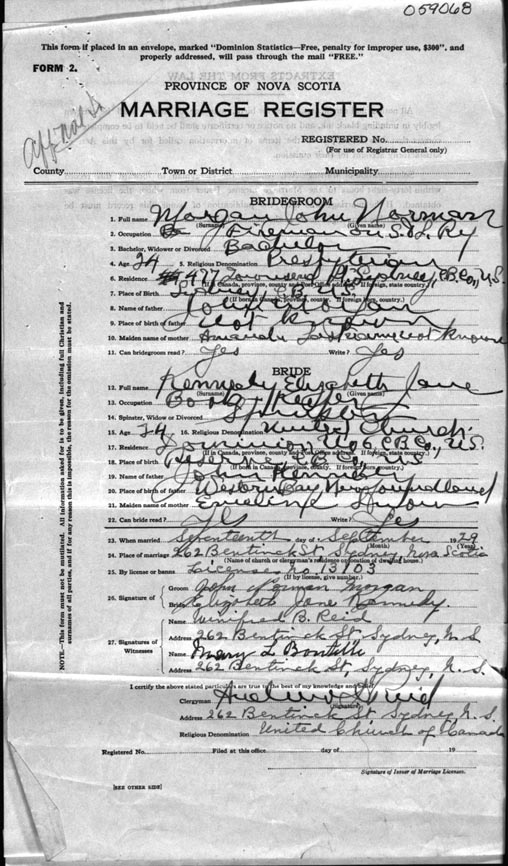 059068
This form if placed in an envelope, marked "Dominion Statistics—Free, penalty for improper use, $300", and
properly addressed, will pass through the mail "FREE."
FORM 2.
PROVINCE OF NOVA SCOTIA
MARRIAGE REGISTER
REGISTERED No.
(For use of Registrar General only)
County Town or District Municipality
BRIDEGROOM
1. Full name Morgan John Norman
(Surname) (Given name)
2. Occupation Fireman on S. & L. Ry
3. Bachelor, Widower or Divorced Bachelor
4. Age 24 5. Religious Denomination Presbyterian
6. Residence 477 Townsend St, Sydney, C.B. Co, N.S.
7. Place of Birth Sydney C.B. N.S.
8. Name of father John Morgan
9. Place of birth of father Not Known
10. Maiden name of mother Amanda Last name not known
11. Can bridegroom read? Yes Write? Yes
BRIDE
12. Full name Kennedy Elizabeth Jane
(Surname) (Given name)
13. Occupation Book Keeper
14. Spinster, Widow or Divorced Spinster
15. Age 24 16. Religious Denomination United Church
17. Residence Dominion No 6 C.B. Co., N.S.
18. Place of birth C.B. Co. N.S.
19. Name of father John Kennedy
20. Place of birth of father Western Bay Newfoundland
21. Maiden name of mother Emeline
22. Can bride read? Yes Write? Yes
23. When married Seventeenth day of September 1929
(Month) (Year)
24. Place of marriage 262 Bentinck St. Sydney, Nova Scotia
(Name of church or clergyman's residence or location of dwelling house.)
25. By license or banns License No. 13103
(If by license, give number.)
26. Signature of Groom John Norman Morgan
Bride Elizabeth Jane Kennedy.
27. Signatures of Witnesses Name Winifred B. Reid
Address 262 Bentinck St, Sydney, N.S
Name Mary L
Address 262 Bentinck St, Sydney, N.S.
I certify the above stated particulars are true to the best of my knowledge and belief.
Clergyman Reid
(Signature)
Address 262 Bentinck St Sydney N.S
Religious Denomination United Church of Canada
Registered No. Filed at this office day of 19
Signature of Issuer of Marriage Licenses.
[SEE OTHER SIDE]
NOTE.—This form must not be mutilated. All information asked for is to be given, including full Christian and
surnames of all parties, and if for any reason this is impossible, the reason for the omission must be stated.